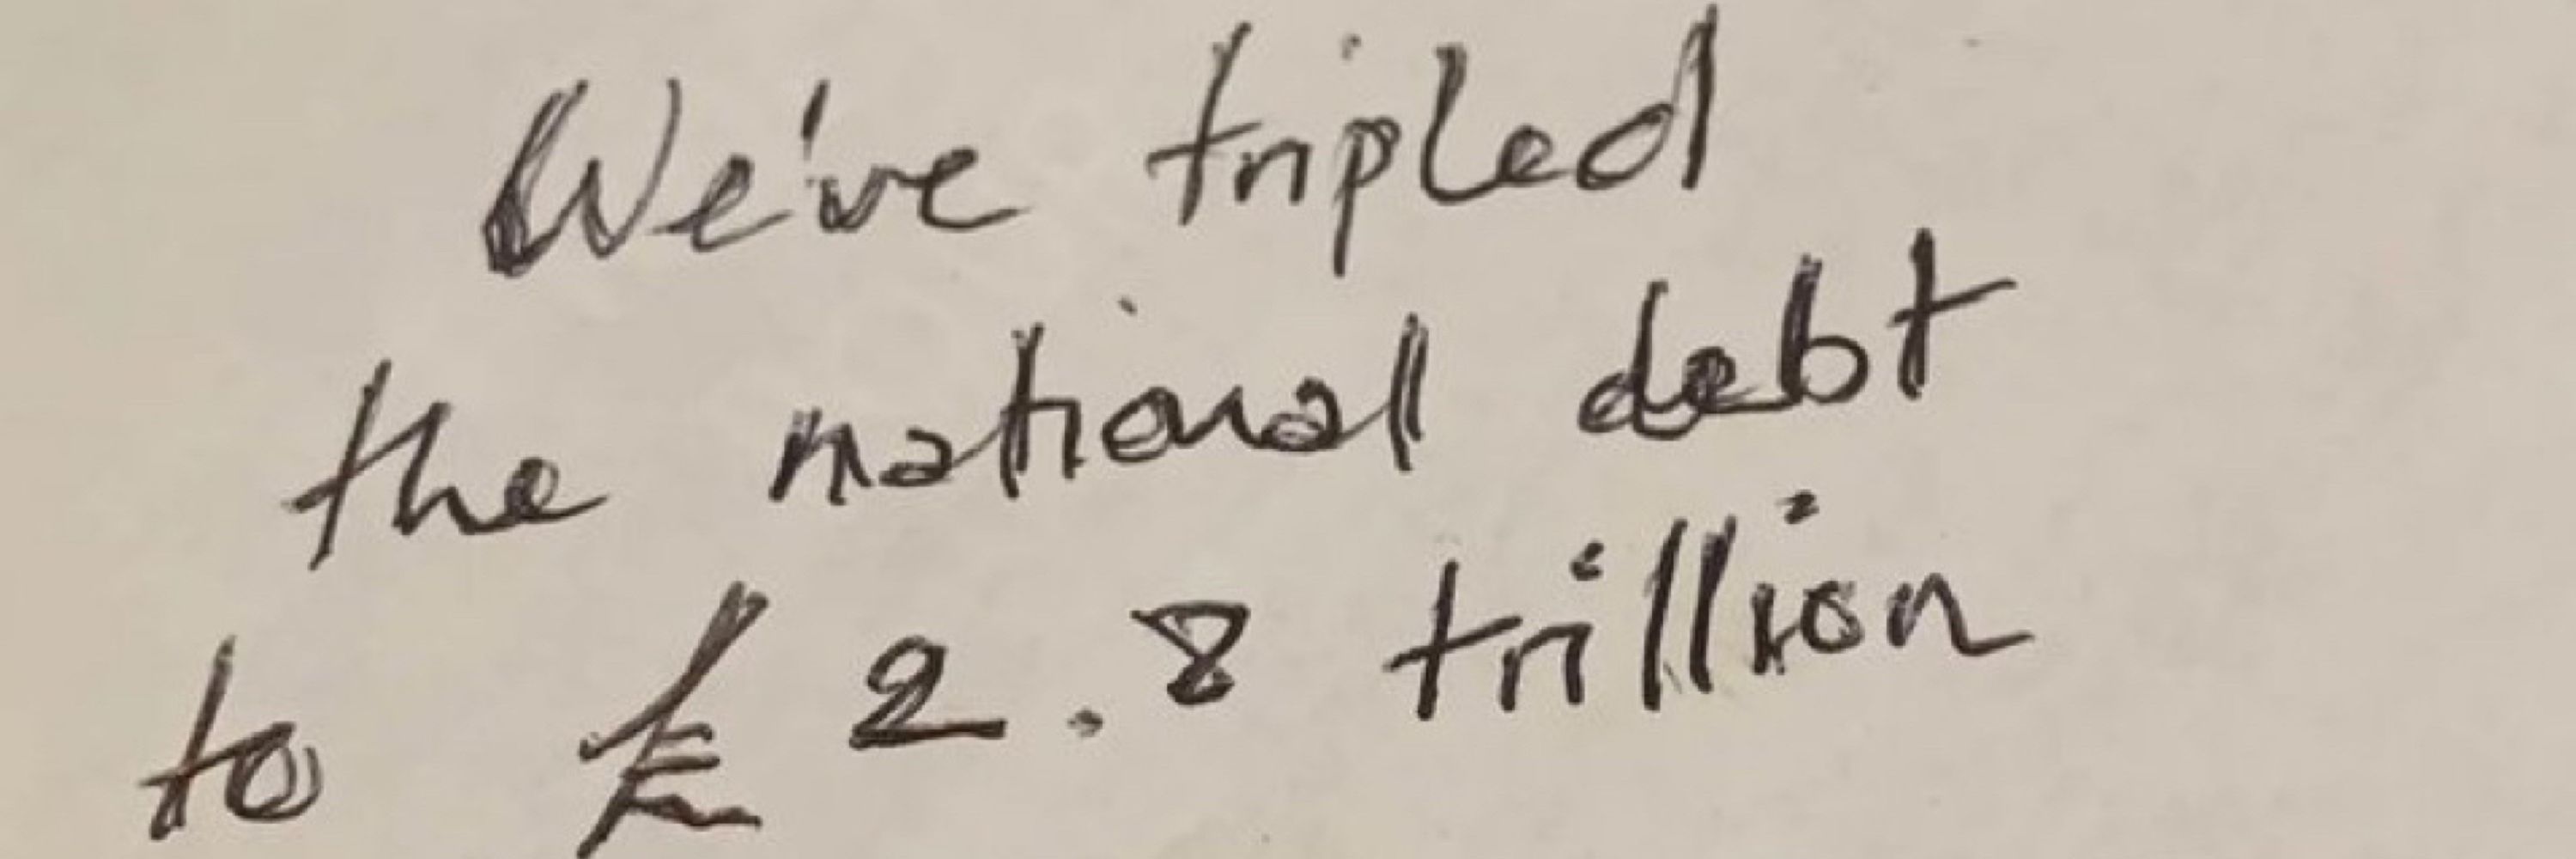 We've tripled
the national debt
to £ 2.8 trillion